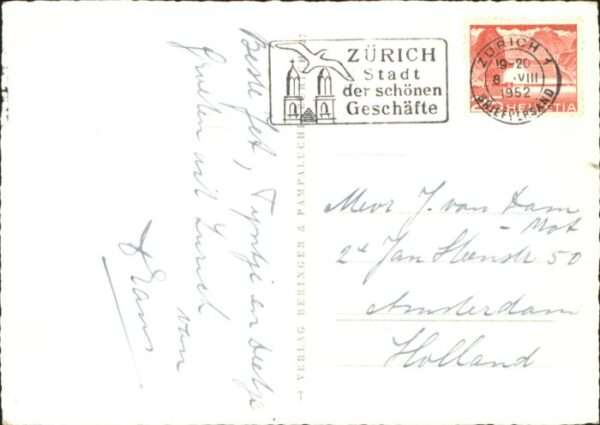 Beste Jet, Tyntje en
Groeten uit Zurich
van
Frans
VERLAG BERINGER & PAMPALUCHI
ZÜRICH
Stadt
der schönen
Geschäfte
ZÜRICH 1
19-20
8. VIII
1952
BRIEFVERSAND
HELVETIA
Mevr J. van Dam
- Mot
2e Jan Steenstr 50
Amsterdam
Holland